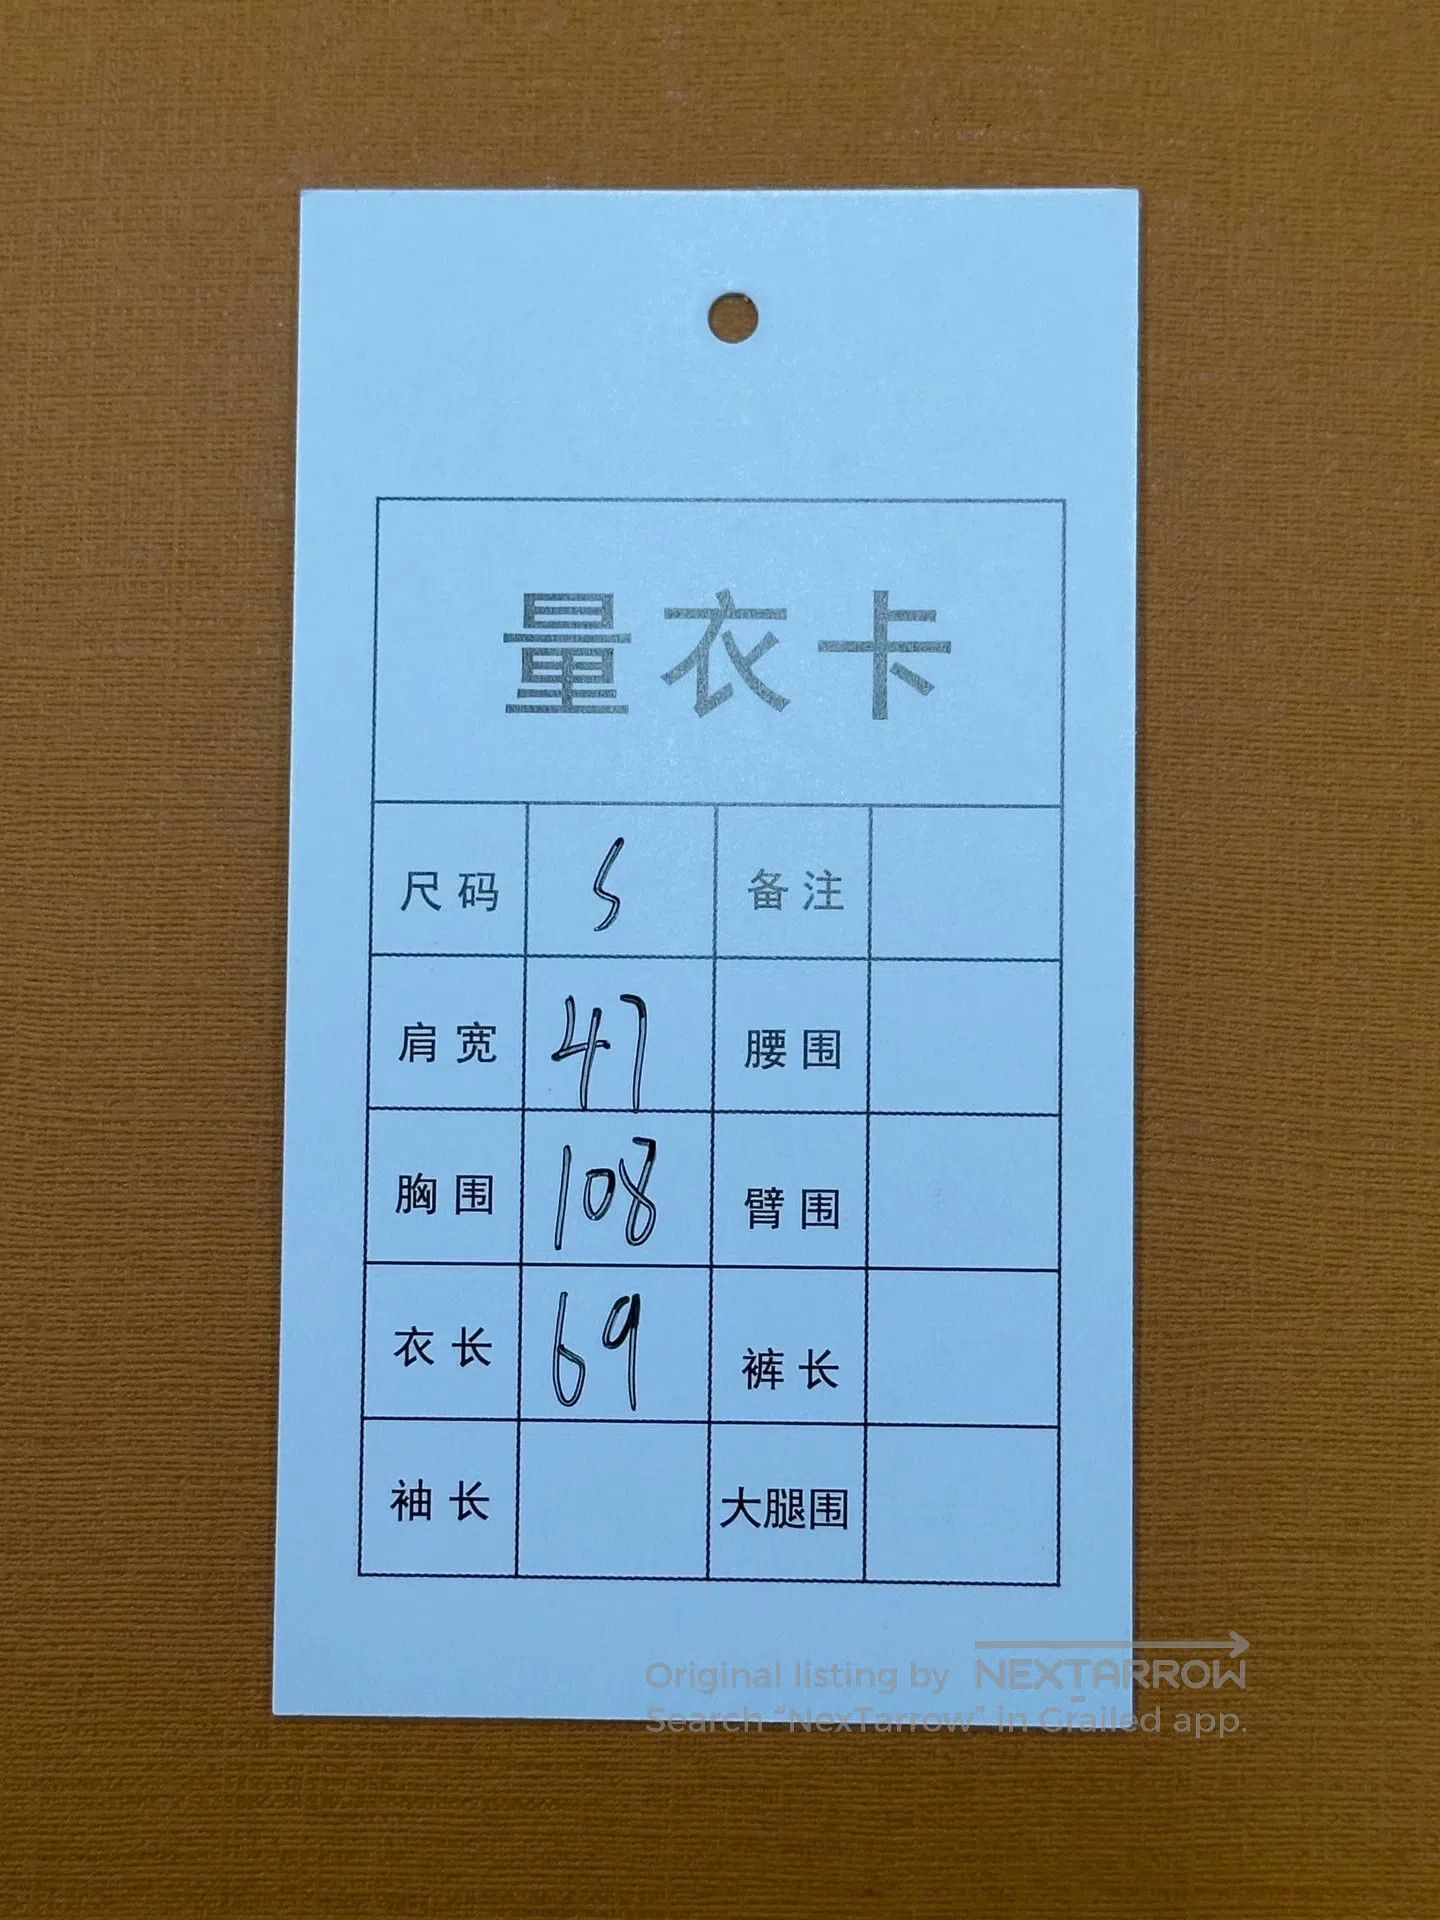 量衣卡
尺码 S 备注
肩宽 47 腰围
胸围 108 臂围
衣长 69 裤长
袖长 大腿围
Original listing by NEXTARROW
Search “NexTarrow” in Grailed app.